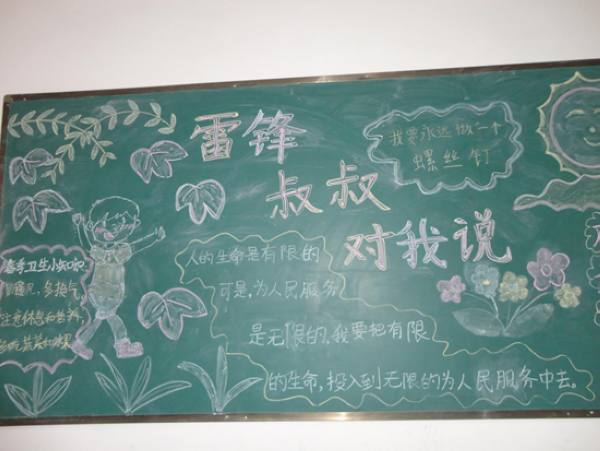 雷锋
叔叔
对我说
我要永远做一个
螺丝钉
人的生命是有限的
可是,为人民服务
是无限的,我要把有限
的生命,投入到无限的为人民服务中去。
春季卫生小知识
多换气
注意休息和营养,